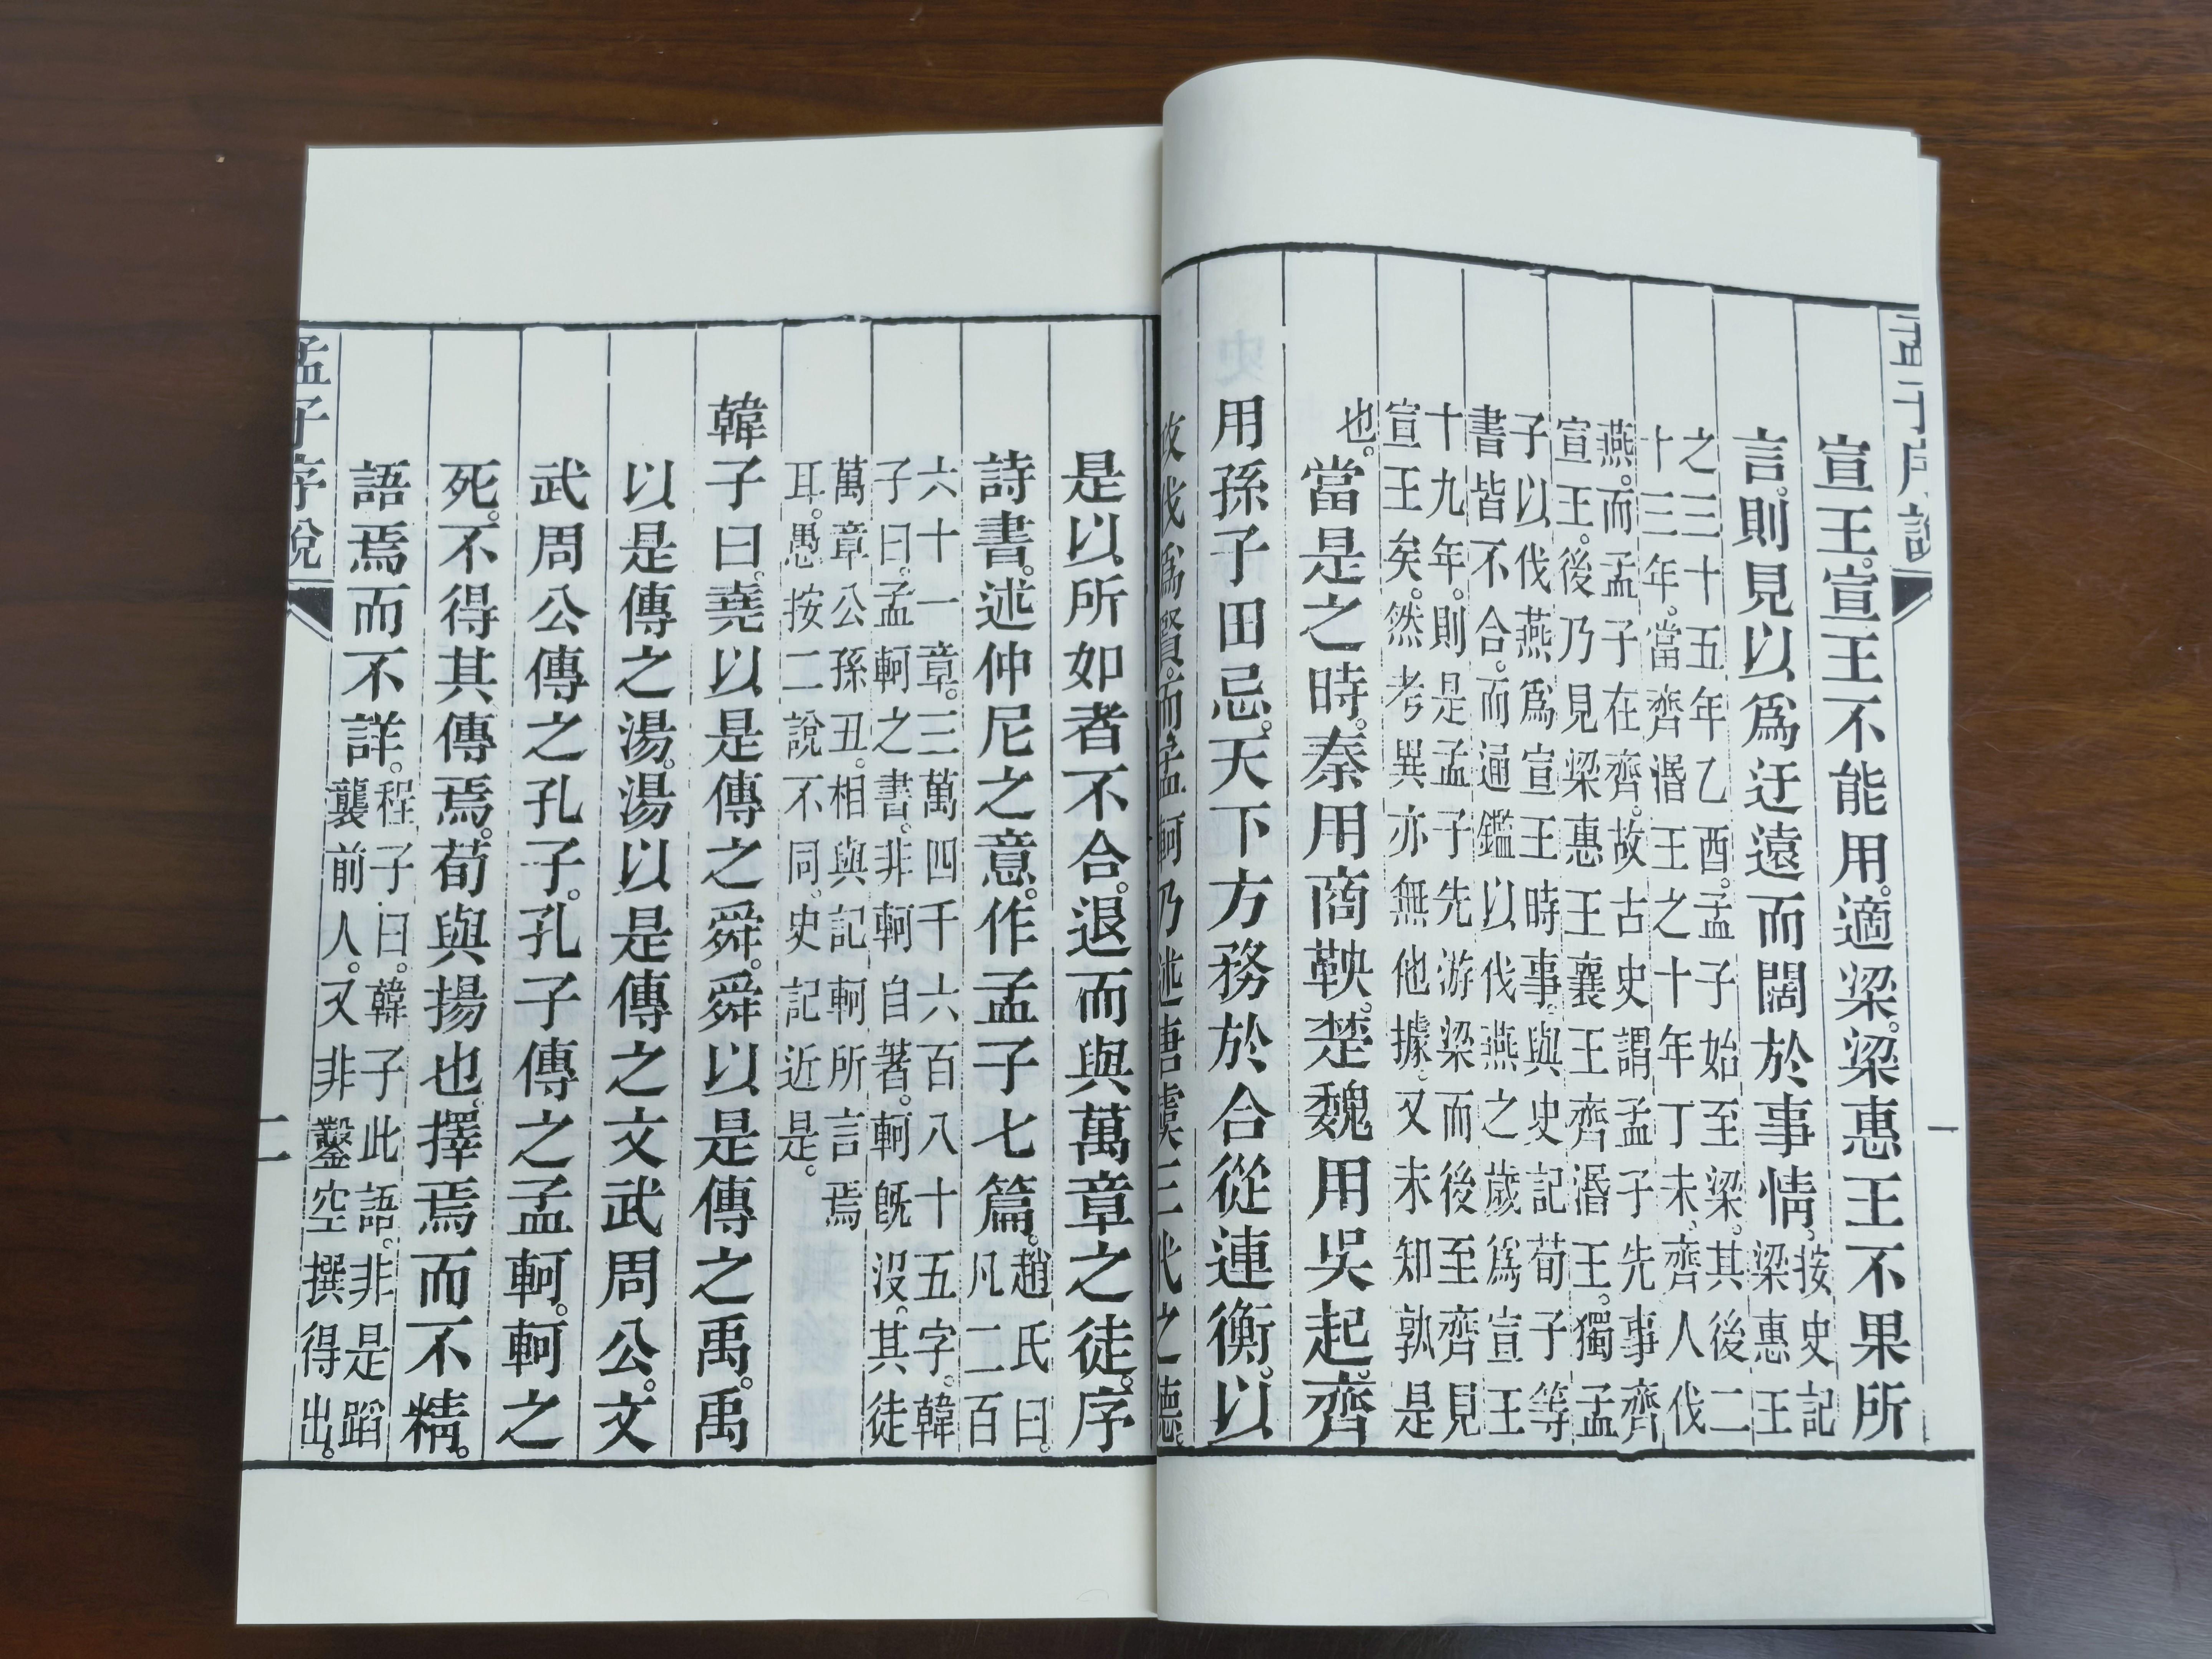 宣王。宣王不能用。適梁。梁惠王不果所
言。則見以爲迂遠而闊於事情。按史記
梁惠王
之三十五年乙酉。孟子始至梁。其後二
十三年。當齊湣王之十年丁未、齊人伐
燕。而孟子在齊。故古史謂孟子先事齊
宣王。後乃見梁惠王襄王齊湣王。獨孟
子以伐燕爲宣王時事、與史記荀子等
書皆不合。而通鑑以伐燕之歲爲宣王
十九年。則是孟子先游梁而後至齊見
宣王矣。然考異亦無他據。又未知孰是
也。
當是之時。秦用商鞅。楚魏用吳起。齊
用孫子田忌。天下方務於合從連衡。以
攻伐爲賢。而孟軻乃述唐虞三代之德。
是以所如者不合。退而與萬章之徒。序
詩書。述仲尼之意。作孟子七篇。趙氏曰。
凡二百
六十一章。三萬四千六百八十五字。韓
子曰。孟軻之書。非軻自著。軻旣沒。其徒
萬章公孫丑。相與記軻所言焉
耳。愚按二說不同。史記近是。
韓子曰。堯以是傳之舜。舜以是傳之禹。禹
以是傳之湯。湯以是傳之文武周公。文
武周公傳之孔子。孔子傳之孟軻。軻之
死。不得其傳焉。荀與揚也。擇焉而不精。
語焉而不詳。程子曰。韓子此語。非是蹈
襲前人。又非鑿空撰得出。
孟子序說
二
孟子序說
一